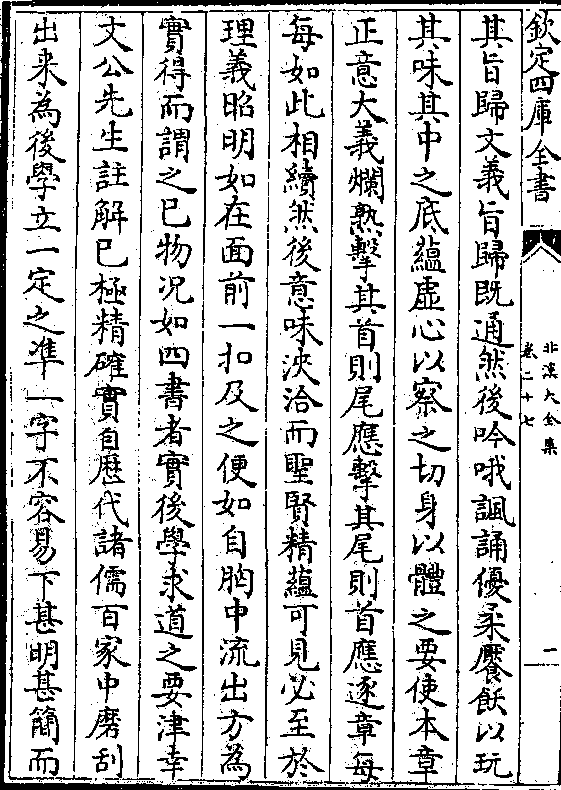 欽定四庫全書
北溪大全集
卷二十七
一
其旨歸文義旨歸既通然後吟哦諷誦優柔饜飫以玩
其味其中之底蘊虛心以察之切身以體之要使本章
正意大義爛熟擊其首則尾應擊其尾則首應逐章每
每如此相續然後意味浹洽而聖賢精蘊可見必至於
理義昭明如在面前一扣及之便如自胸中流出方為
實得而謂之已物况如四書者實後學求道之要津幸
文公先生註解已極精確實自歴代諸儒百家中磨刮
出来為後學立一定之凖一字不容易下甚明甚簡而